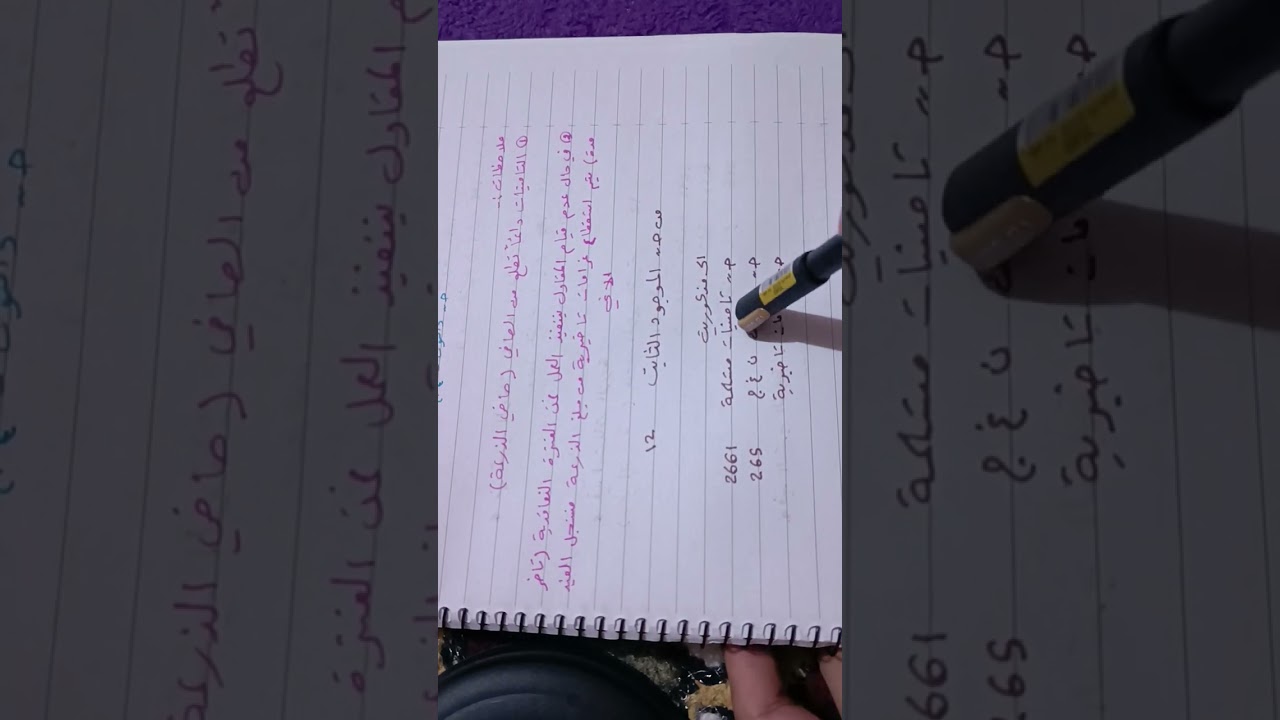 ملاحظات :-
① التامينات دائماً تقطع من الصافي (صافي الذرعة)
② في حال عدم قيام المقاول بتنفيذ العمل عن الفترة التعاقدية (تاخر
مدة) يتم استقطاع غرامات تاخيرية من مبلغ الذرعة فنسجل القيد
الاتي
من حـ/ الموجود الثابت ١٢
الى مذكورين
حـ/ تامينات مستلمة 2661
حـ/ 265
تاخيرية